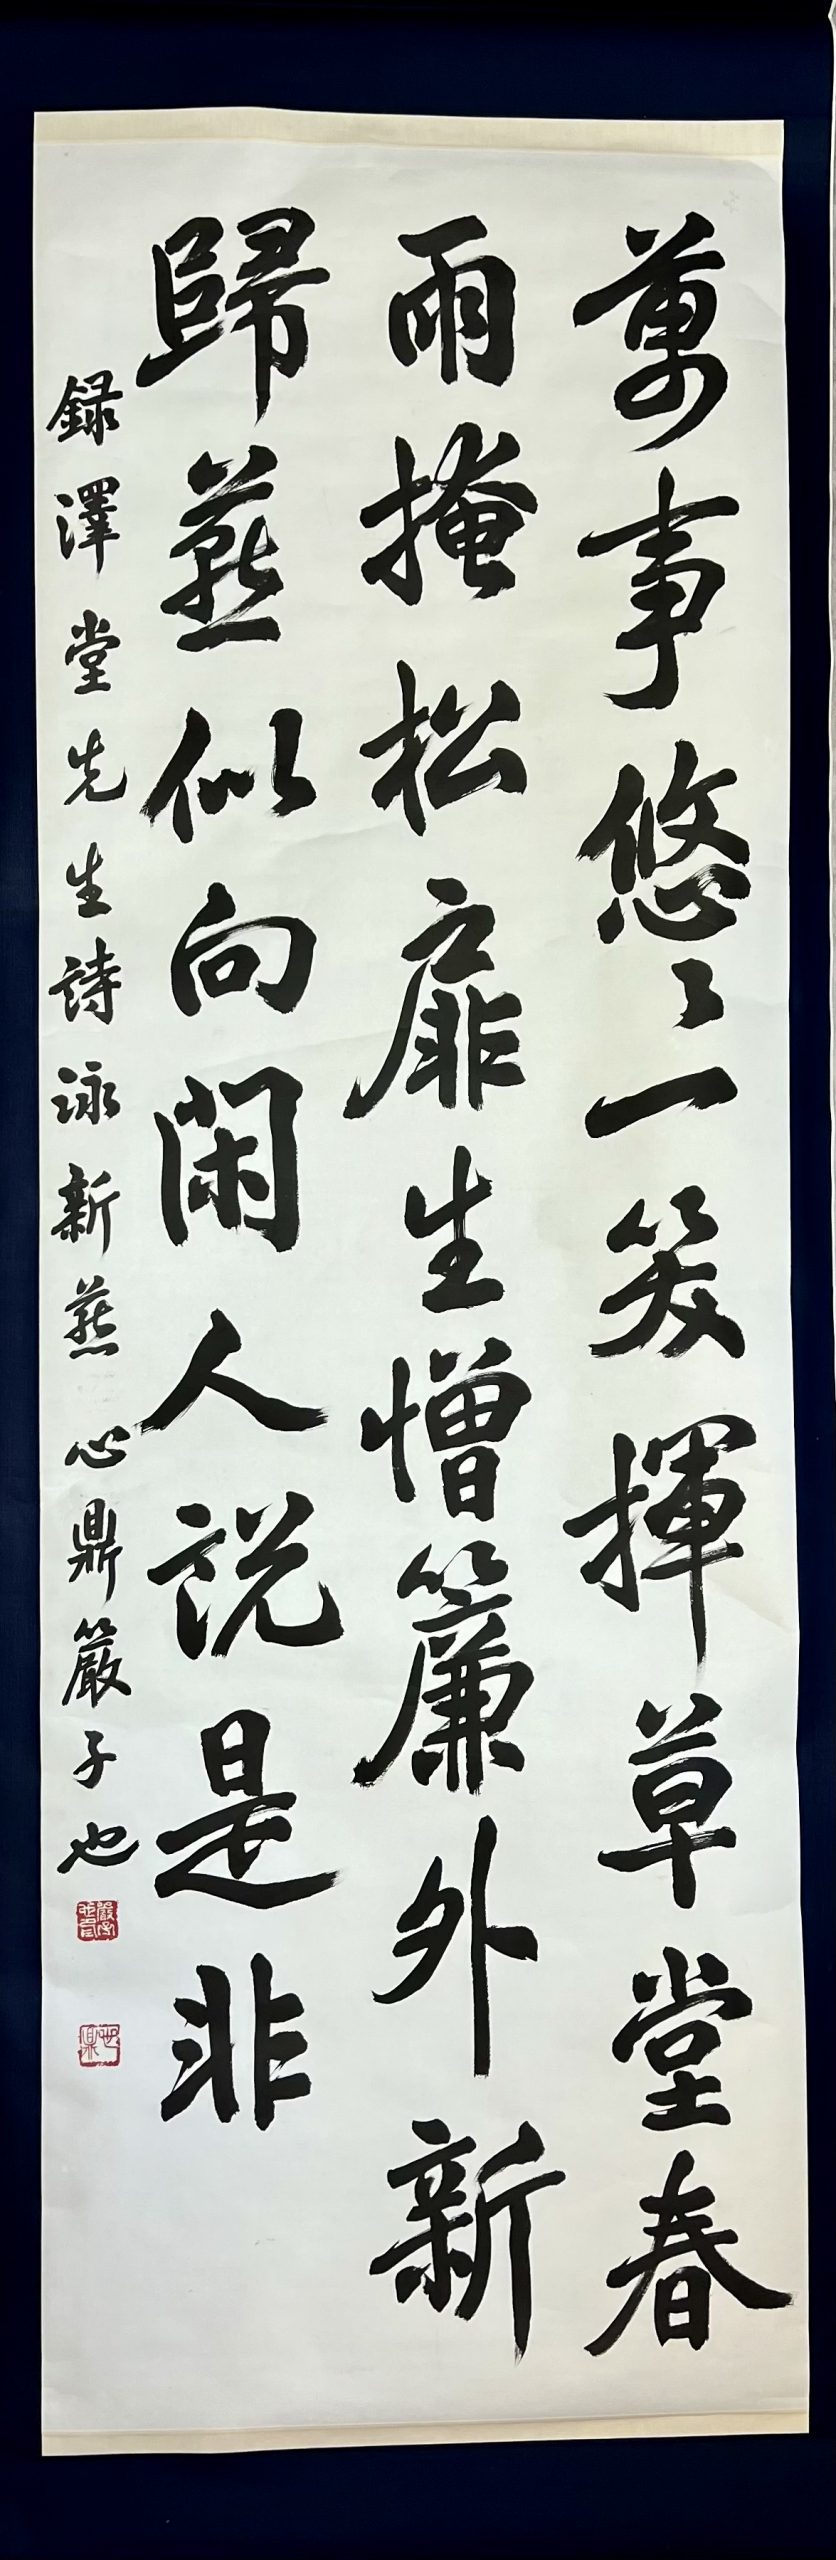 萬事悠々一笑揮草堂春
雨掩松扉生憎簾外新
歸燕似向閑人說是非
録澤堂先生詩詠新燕 心鼎嚴子也